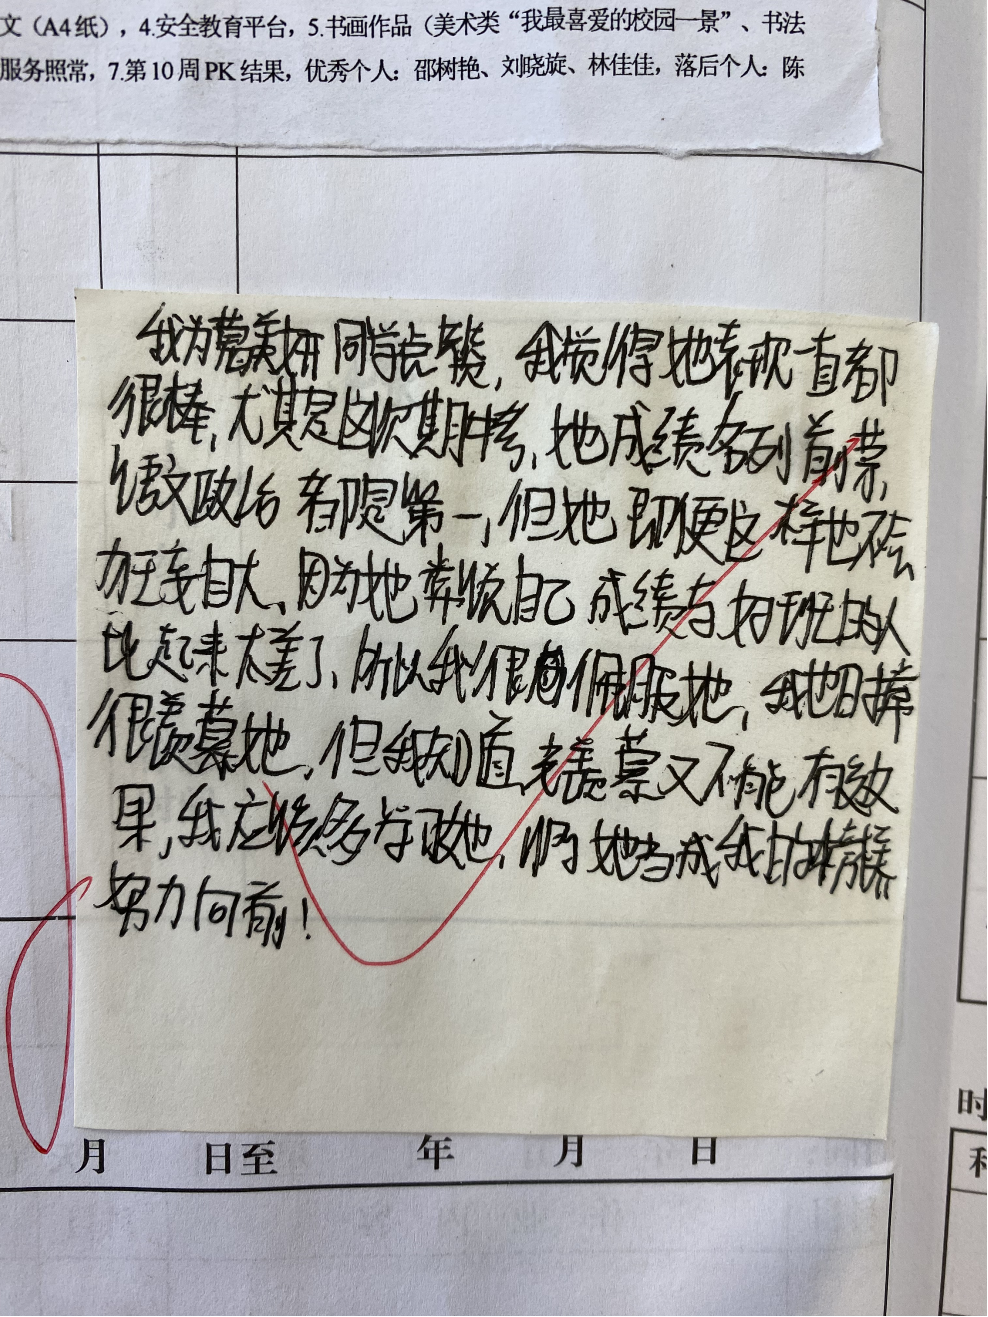 文（A4纸），4.安全教育平台，5.书画作品（美术类“我最喜爱的校园一景”、书法
服务照常，7.第10周PK结果，优秀个人：邵树艳、刘晓旋、林佳佳，落后个人：陈
我为葛美妍同学点赞，我觉得她表现一直都
很棒，尤其是这次期中考，她成绩名列前茅，
语文政治都是第一，但她即便这样也不会
狂妄自大、因为她觉得自己成绩与好班的人
比起来太差了、所以我很佩服她，我也日常
很羡慕她，但我知道光羡慕又不能有效
果，我应该多学习她，将她当成我的榜样
努力向前！
月 日至 年 月 日
时
科